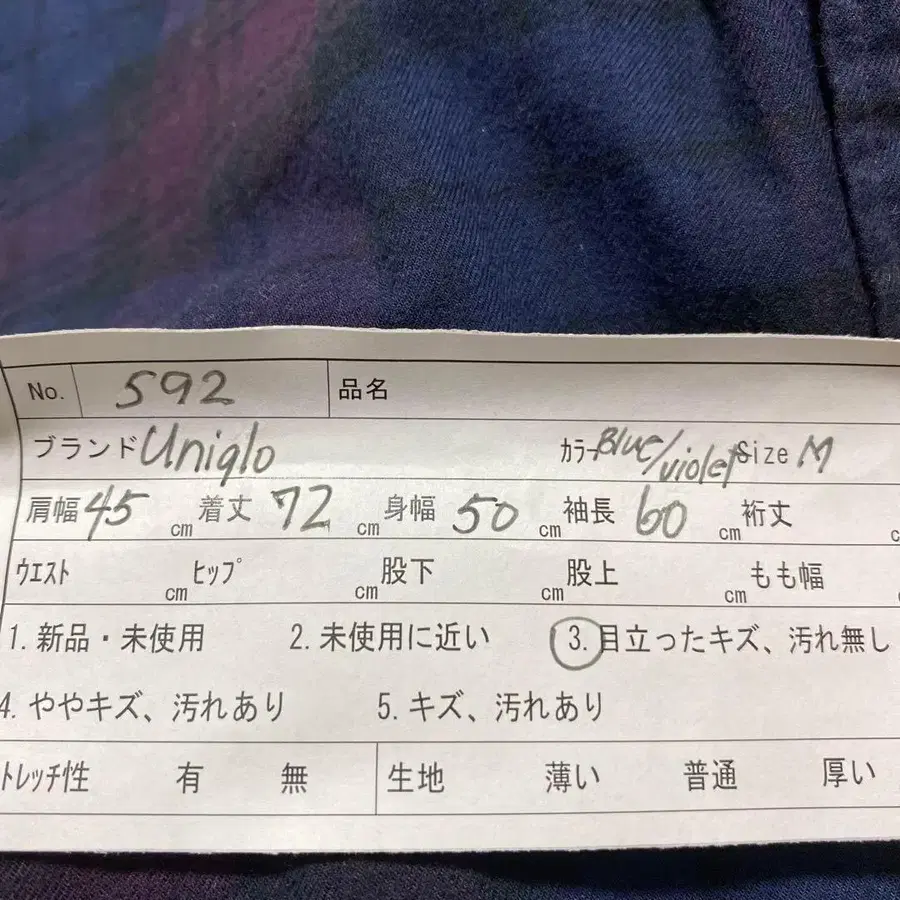 No. 592 品名
ブランド Uniglo カラー Blue/violet Size M
肩幅 45 cm 着丈 72 cm 身幅 50 cm 袖長 60 cm 裄丈 c
ウエスト cm ヒップ cm 股下 cm 股上 cm もも幅
1. 新品・未使用 2. 未使用に近い 3. 目立ったキズ、汚れ無し
4. ややキズ、汚れあり 5. キズ、汚れあり
トレッチ性 有 無 生地 薄い 普通 厚い